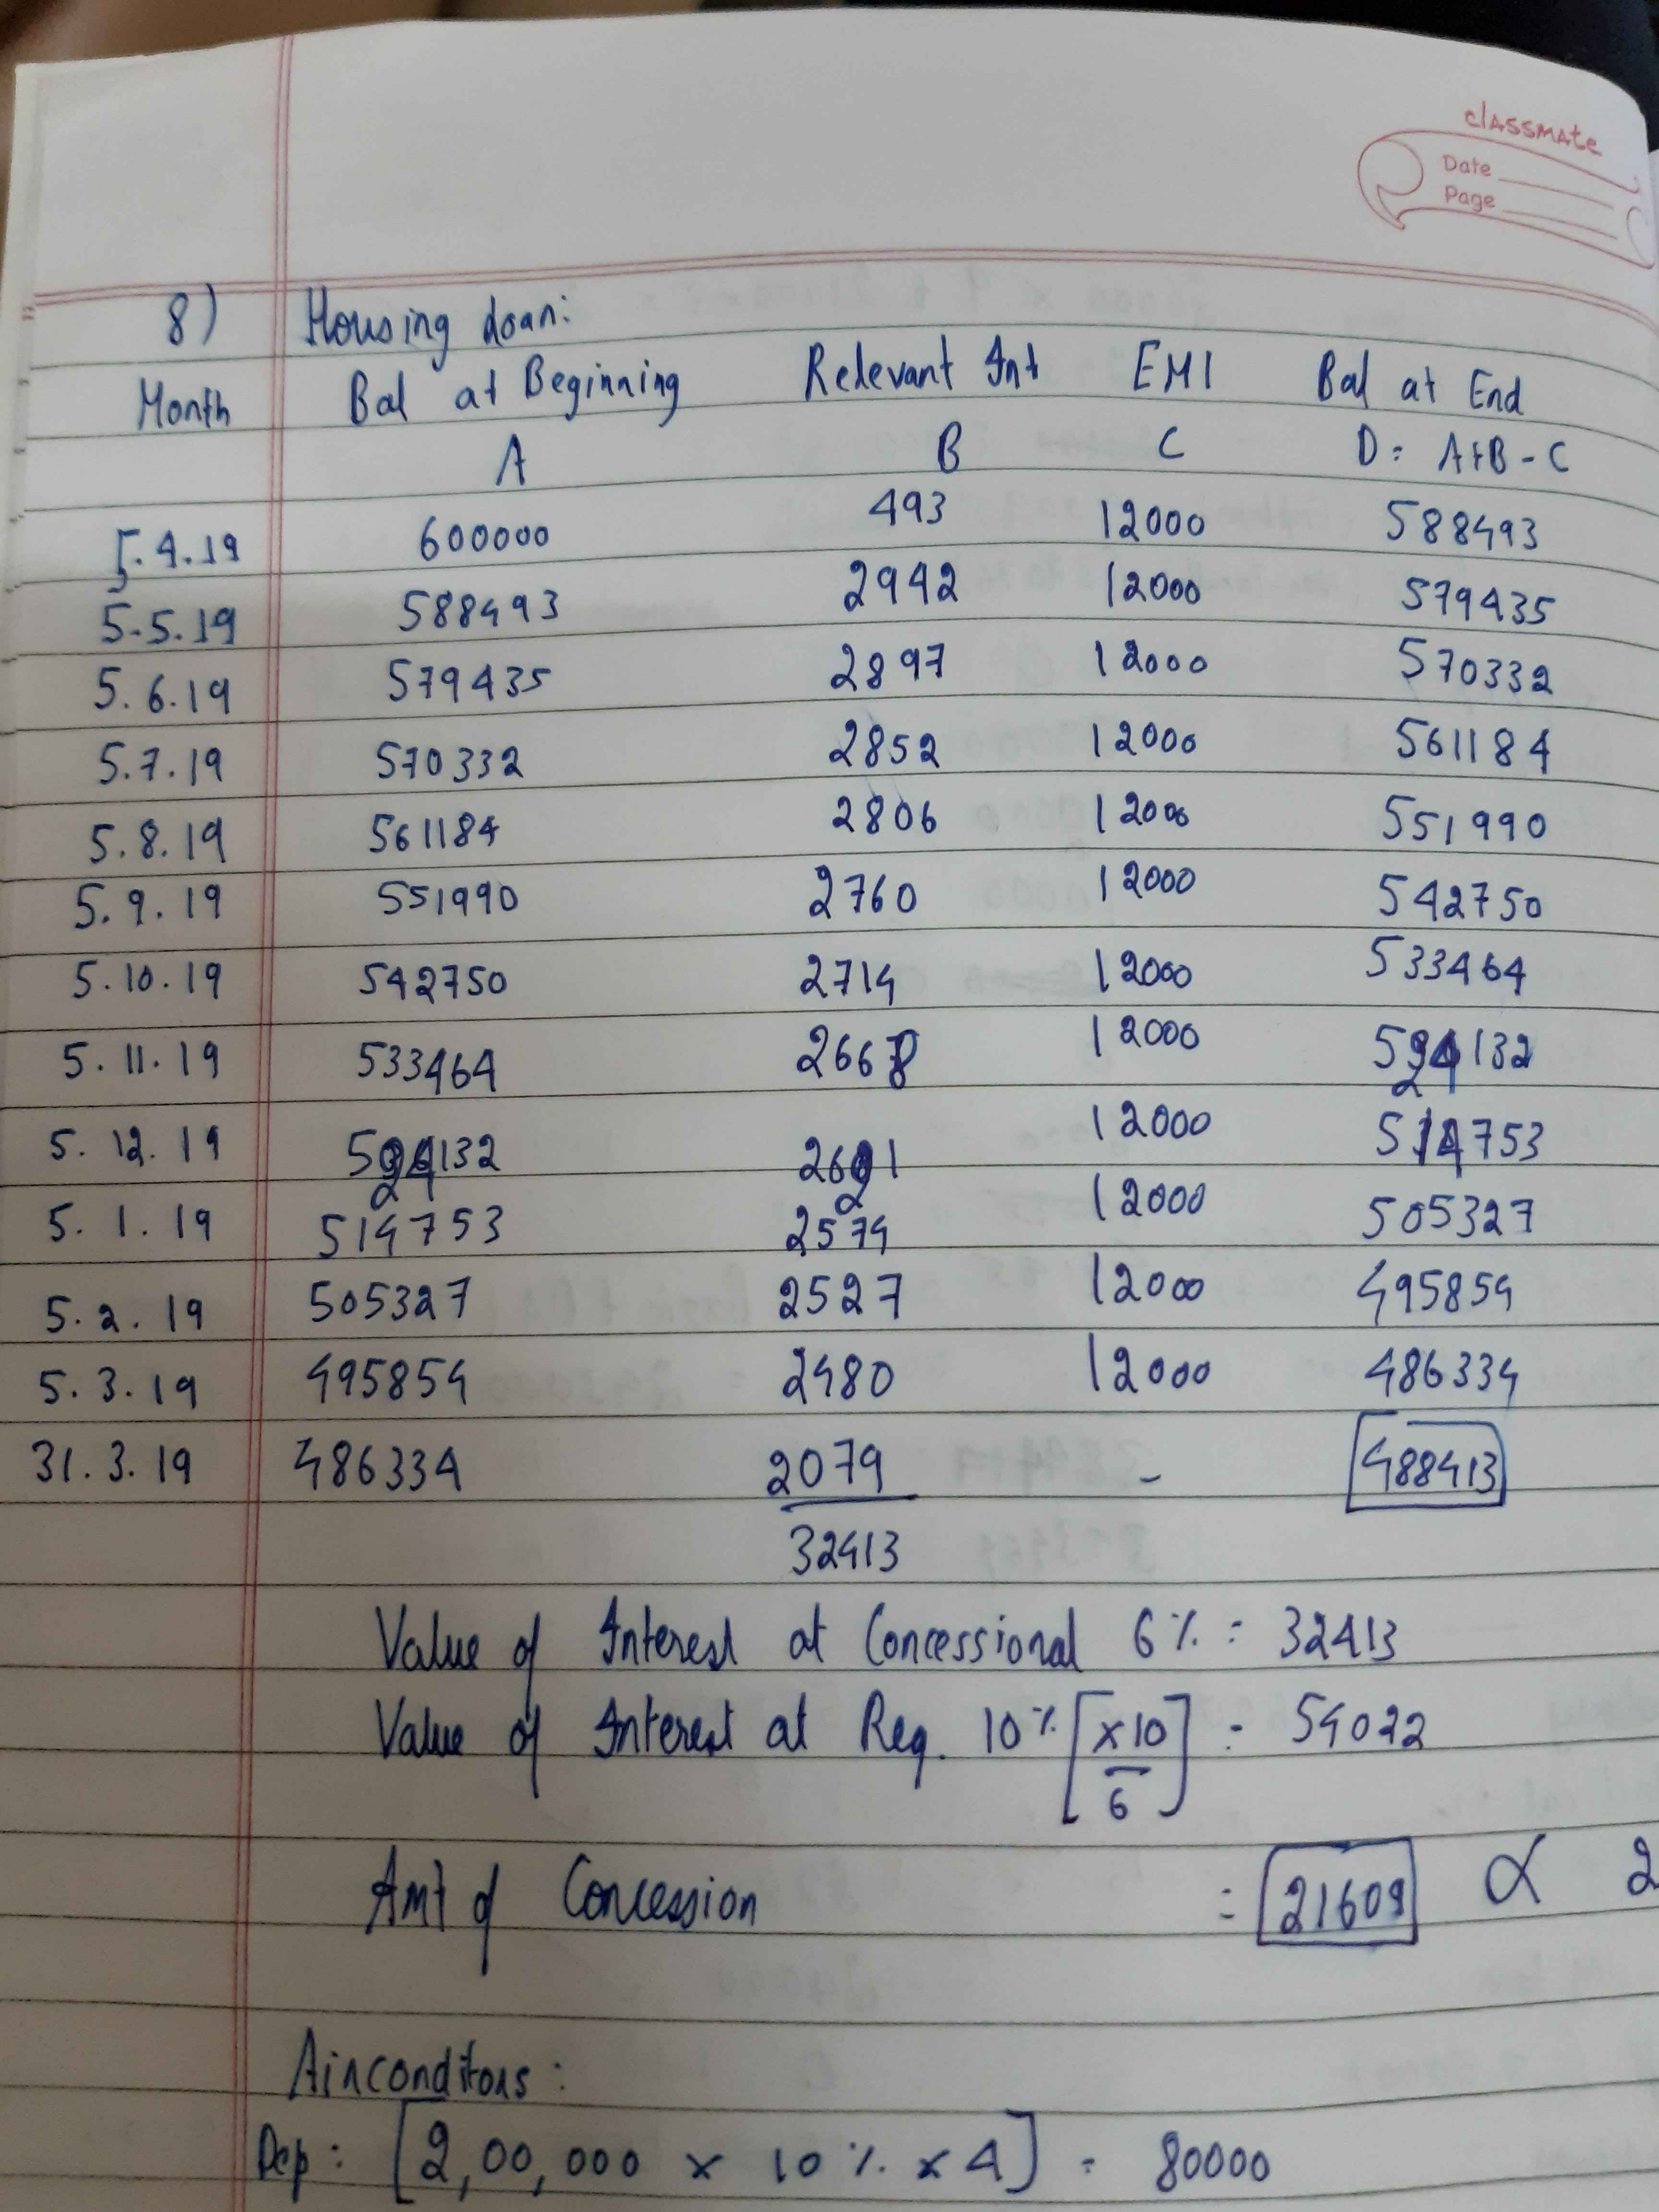 classmate
Date
Page
8) Housing Loan:
Month Bal at Beginning Relevant Int EMI Bal at End
A B C D = A+B-C
5.4.19 600000 493 12000 588493
5.5.19 588493 2942 12000 579435
5.6.19 579435 2897 12000 570332
5.7.19 570332 2852 12000 561184
5.8.19 561184 2806 12000 551990
5.9.19 551990 2760 12000 542750
5.10.19 542750 2714 12000 533464
5.11.19 533464 2668 12000 524132
5.12.19 524132 2621 12000 514753
5.1.19 514753 2574 12000 505327
5.2.19 505327 2527 12000 495854
5.3.19 495854 2480 12000 486334
31.3.19 486334 2079 - 488413
32413
Value of Interest at Concessional 6% = 32413
Value of Interest at Req. 10% [×10/6] = 54022
Amt of Concession = 21609 α 2
Airconditors:
Dep: [2,00,000 × 10% × 4] = 80000